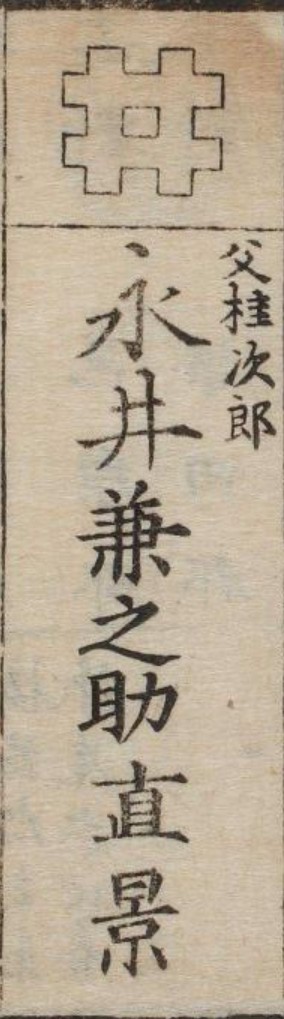 父桂次郎
永井兼之助直景